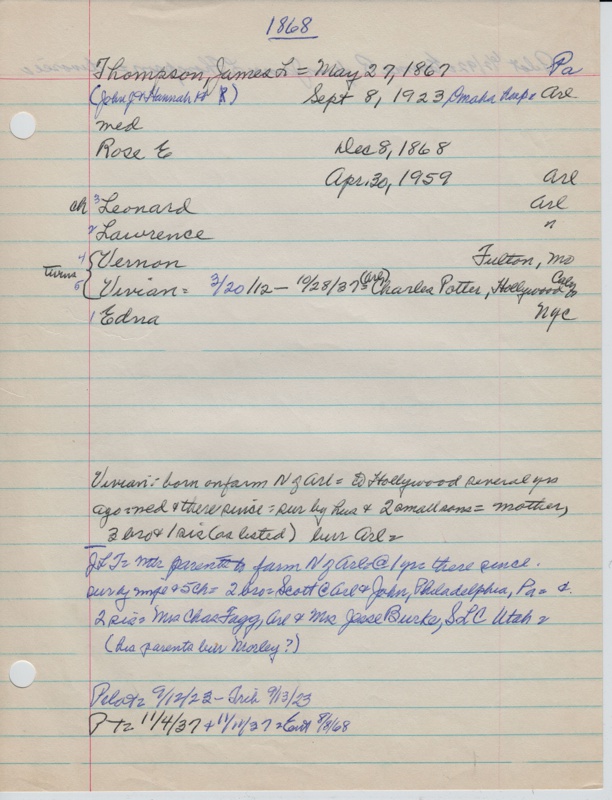 1868
Thompson, James L = May 27, 1867 Pa
(John J & Hannah R) Sept 8, 1923 Omaha Hosp = Arl
med
Rose E Dec 8, 1868
Apr. 30, 1959 Arl
ch 3 Leonard Arl
2 Lawrence "
twins { 4 Vernon Fulton, Mo
5 Vivian = 3/20/12 – 10/28/37 = (Arl) Charles Potter, Hollywood Calif
1 Edna NYC
Vivian: = born on farm N of Arl = to Hollywood several yrs
ago = med & there since = sur by hus & 2 small sons = mother,
3 bro & 1 sis (as listed) bur Arl =
JLT = parents to farm N of Arl @ 1 yrs there since.
sur by wife & 5 ch = 2 bro = Scott @ Arl & John, Philadelphia, Pa = &
2 sis = Mrs Chas Fagg, Arl & Mrs Jesse Burke, SLC Utah =
(his parents bur Morley?)
Pilot = 9/12/23 – Trib 9/13/23
P T = 11/4/37 + 11/11/37 = Ent 8/8/68